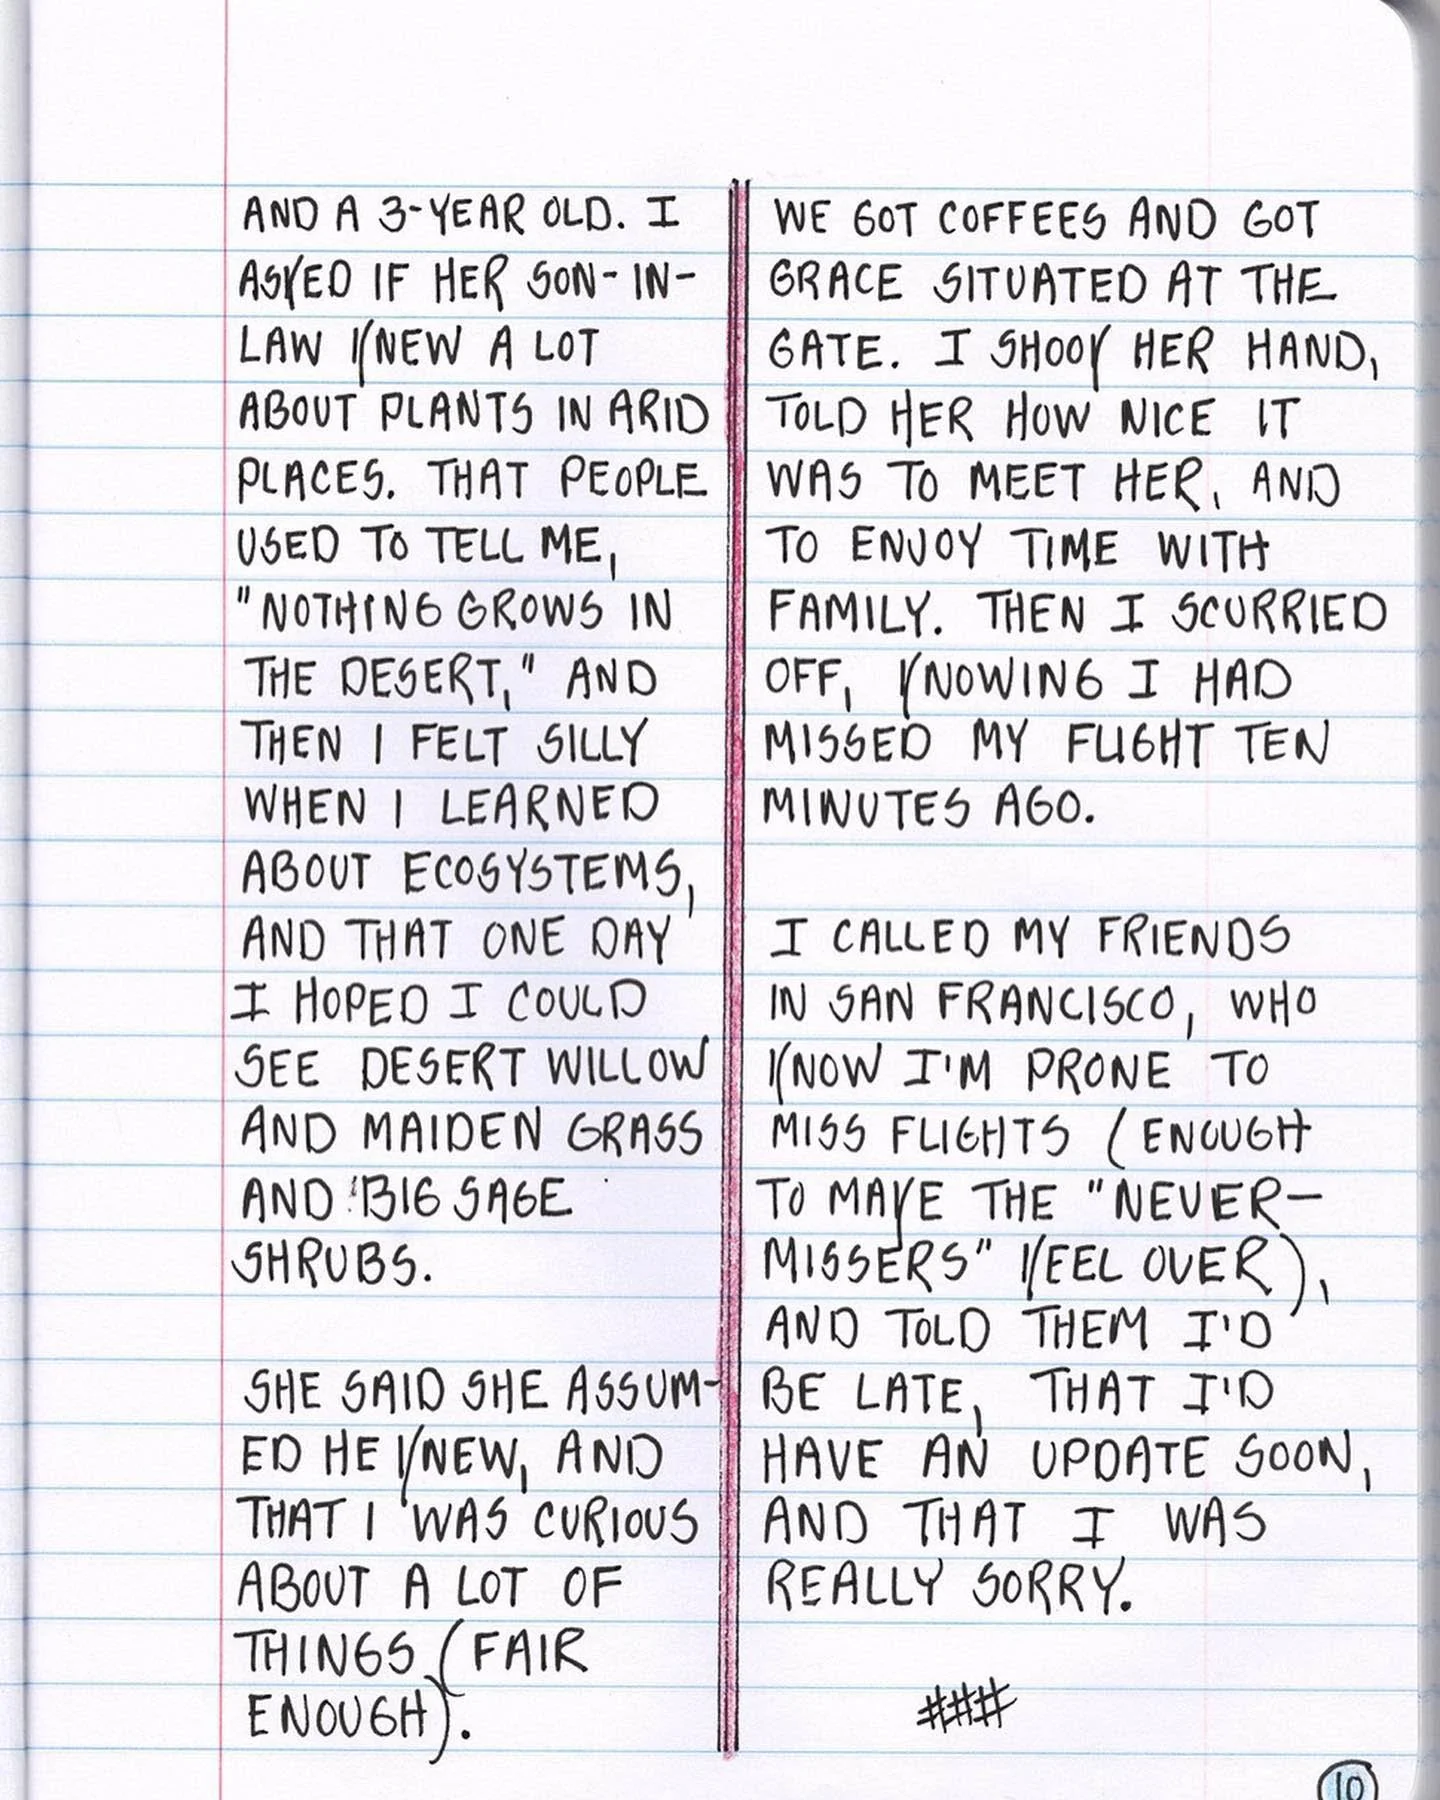 AND A 3-YEAR OLD. I
ASKED IF HER SON-IN-
LAW KNEW A LOT
ABOUT PLANTS IN ARID
PLACES. THAT PEOPLE
USED TO TELL ME,
"NOTHING GROWS IN
THE DESERT," AND
THEN I FELT SILLY
WHEN I LEARNED
ABOUT ECOSYSTEMS,
AND THAT ONE DAY
I HOPED I COULD
SEE DESERT WILLOW
AND MAIDEN GRASS
AND BIG SAGE
SHRUBS.
SHE SAID SHE ASSUM-
ED HE KNEW, AND
THAT I WAS CURIOUS
ABOUT A LOT OF
THINGS (FAIR
ENOUGH).
WE GOT COFFEES AND GOT
GRACE SITUATED AT THE
GATE. I SHOOK HER HAND,
TOLD HER HOW NICE IT
WAS TO MEET HER, AND
TO ENJOY TIME WITH
FAMILY. THEN I SCURRIED
OFF, KNOWING I HAD
MISSED MY FLIGHT TEN
MINUTES AGO.
I CALLED MY FRIENDS
IN SAN FRANCISCO, WHO
KNOW I'M PRONE TO
MISS FLIGHTS (ENOUGH
TO MAKE THE "NEVER-
MISSERS" KEEL OVER),
AND TOLD THEM I'D
BE LATE, THAT I'D
HAVE AN UPDATE SOON,
AND THAT I WAS
REALLY SORRY.
###
10